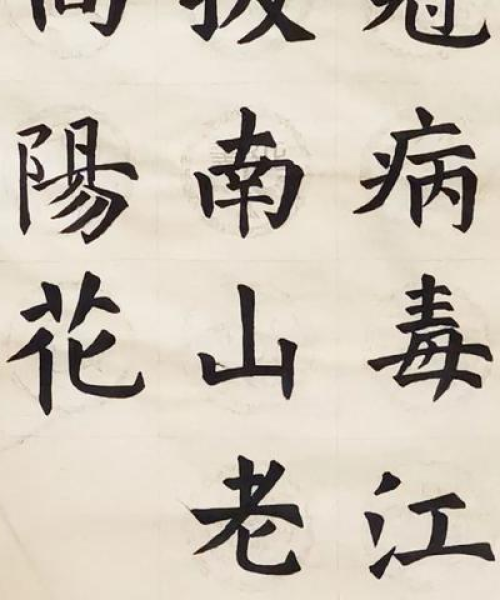 冠病毒江
南山老
向陽花